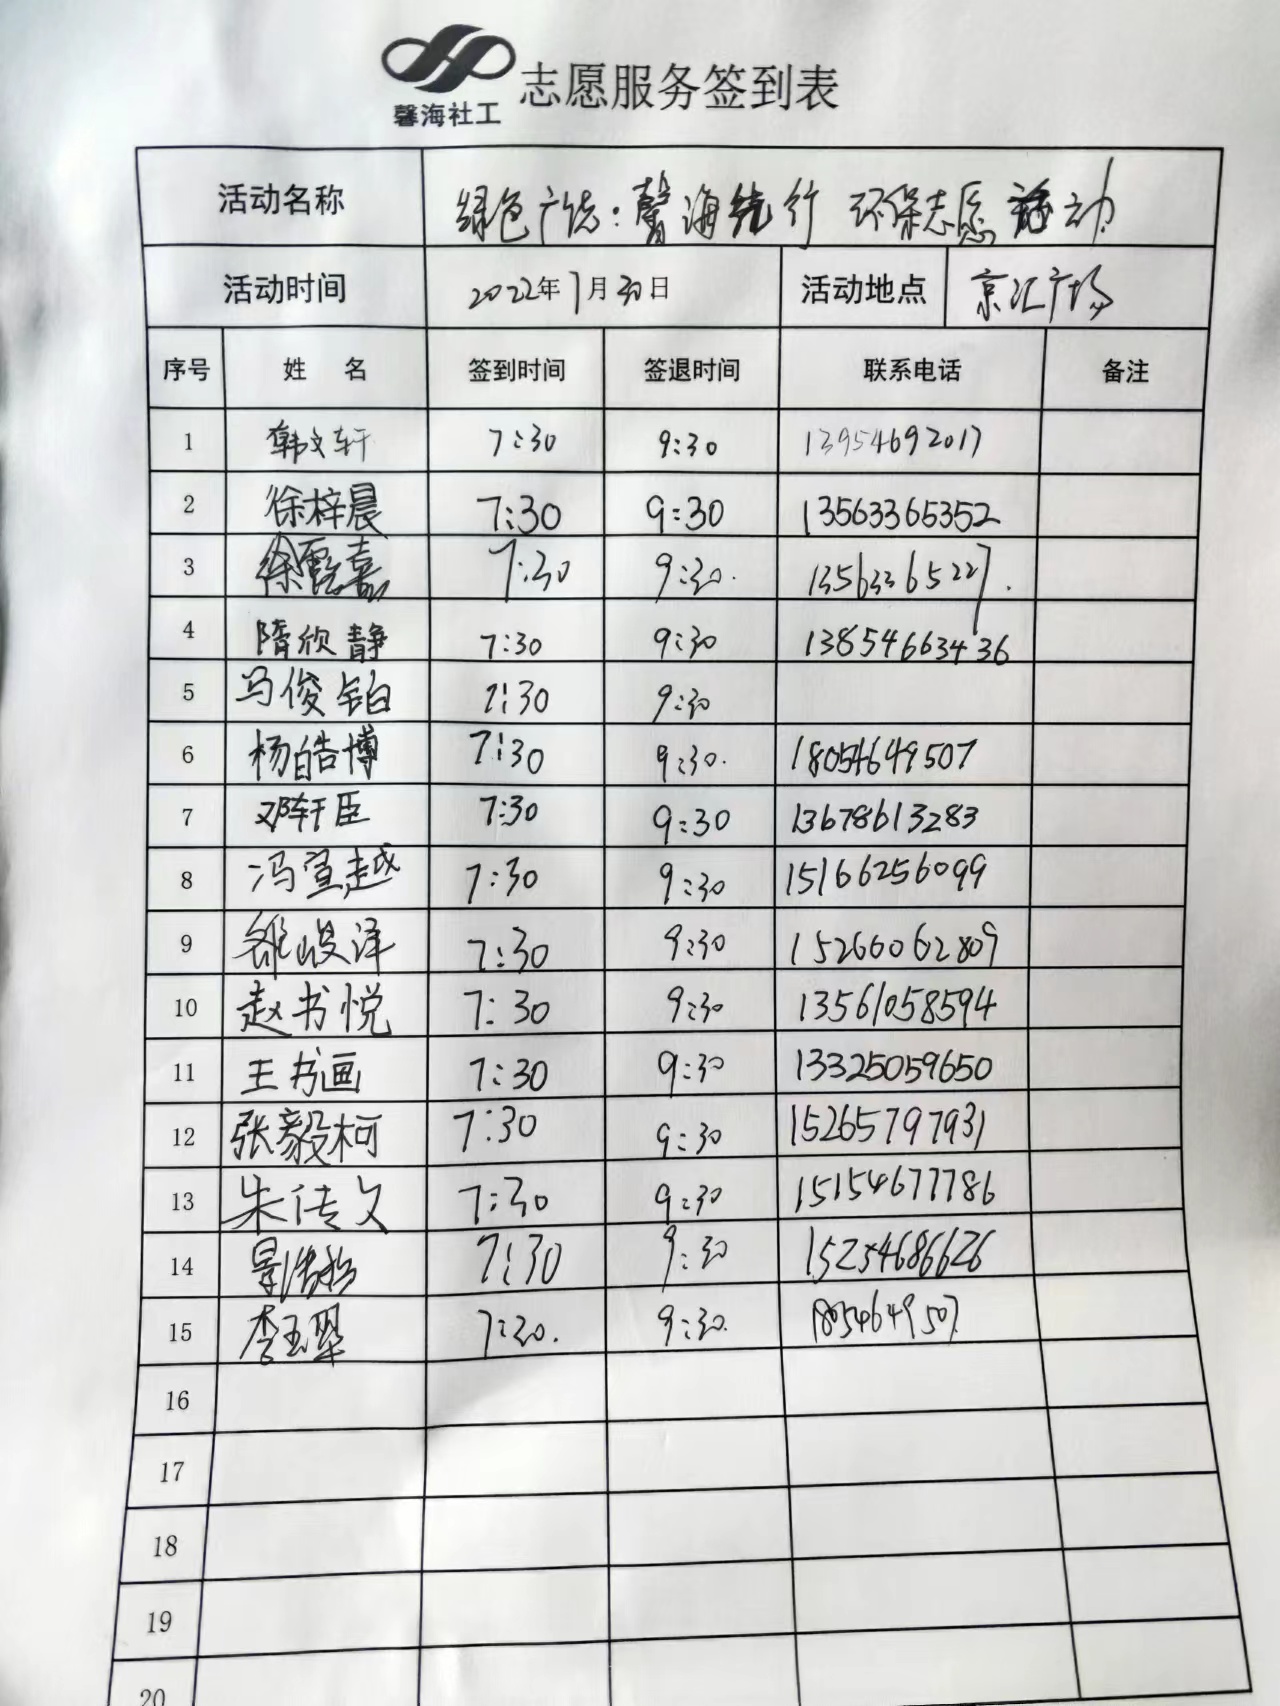 馨海社工
志愿服务签到表
活动名称 绿色广饶：馨海先行 环保志愿活动
活动时间 2022年7月30日 活动地点 京汇广场
序号 姓 名 签到时间 签退时间 联系电话 备注
1 韩文轩 7:30 9:30 13954692017
2 徐梓晨 7:30 9:30 13563365352
3 徐嘉 7:30 9:30. 13563365227.
4 隋欣静 7:30 9:30 13854663436
5 马俊铂 7:30 9:30
6 杨皓博 7:30 9:30. 18054649507
7 邓轩臣 7:30 9:30 13678613283
8 冯萱越 7:30 9:30 15166256099
9 峻泽 7:30 9:30 15266062809
10 赵书悦 7:30 9:30 13561058594
11 王书画 7:30 9:30 13325059650
12 张毅柯 7:30 9:30 15265797931
13 朱传文 7:30 9:30 15154677786
14 景 7:30 9:30 15254686626
15 李玉翠 7:30. 9:30. 18054649507.
16
17
18
19
20